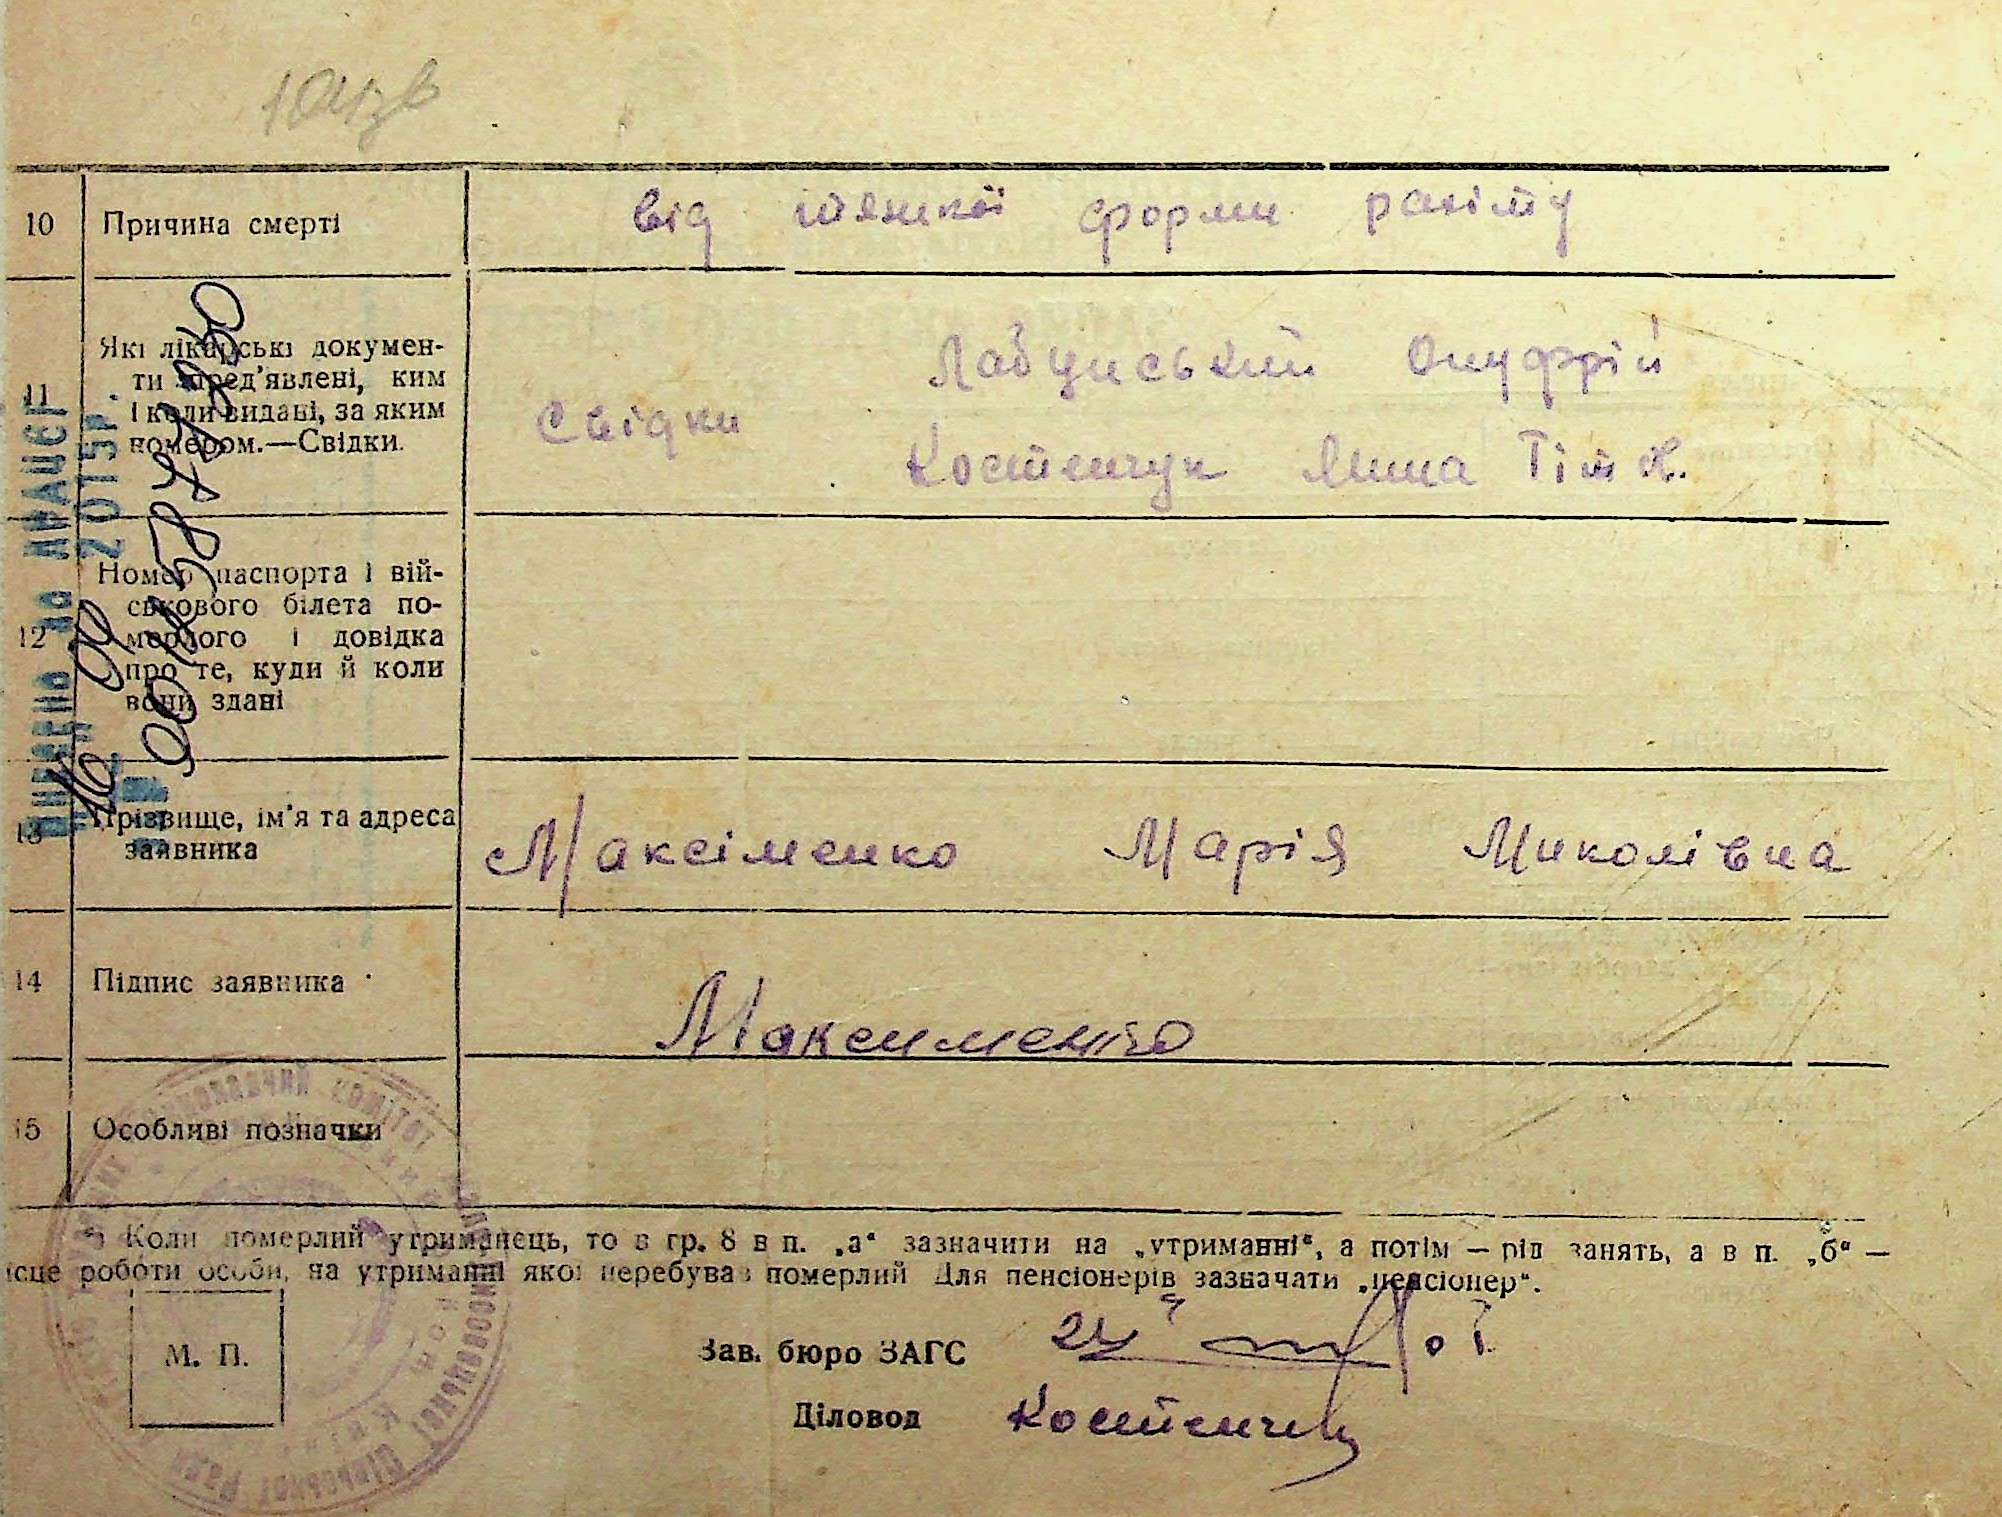 10 Причина смерті від тяжкої форми рахіту
11 Які лікарські докумен-
ти пред'явлені, ким
і коли видані, за яким
номером.—Свідки.
Свідки
Лабунський Онуфрій
Костенчук Янина Тім Х.
12 Номер паспорта і вій-
ськового білета по-
мерлого і довідка
про те, куди й коли
вони здані
13 Прізвище, ім'я та адреса
заявника
Максіменко Марія Миколівна
14 Підпис заявника Максименко
15 Особливі позначки
*) Коли померлий утриманець, то в гр. 8 в п. „а“ зазначити на „утриманні“, а потім — рід занять, а в п. „б“ —
ісце роботи особи, на утриманні якої перебував померлий Для пенсіонерів зазначати „пенсіонер“.
М. П.
Зав. бюро ЗАГС
Діловод Костенчук
виконавчий комітет
сільської Ради
2015р.